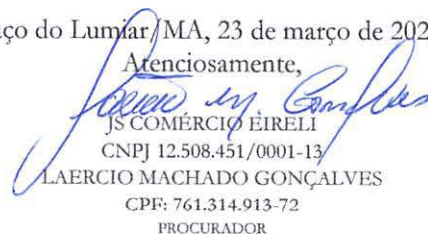 ço do Lumiar/MA, 23 de março de 202
Atenciosamente,
JS COMÉRCIO EIRELI
CNPJ 12.508.451/0001-13
LAERCIO MACHADO GONÇALVES
CPF: 761.314.913-72
PROCURADOR